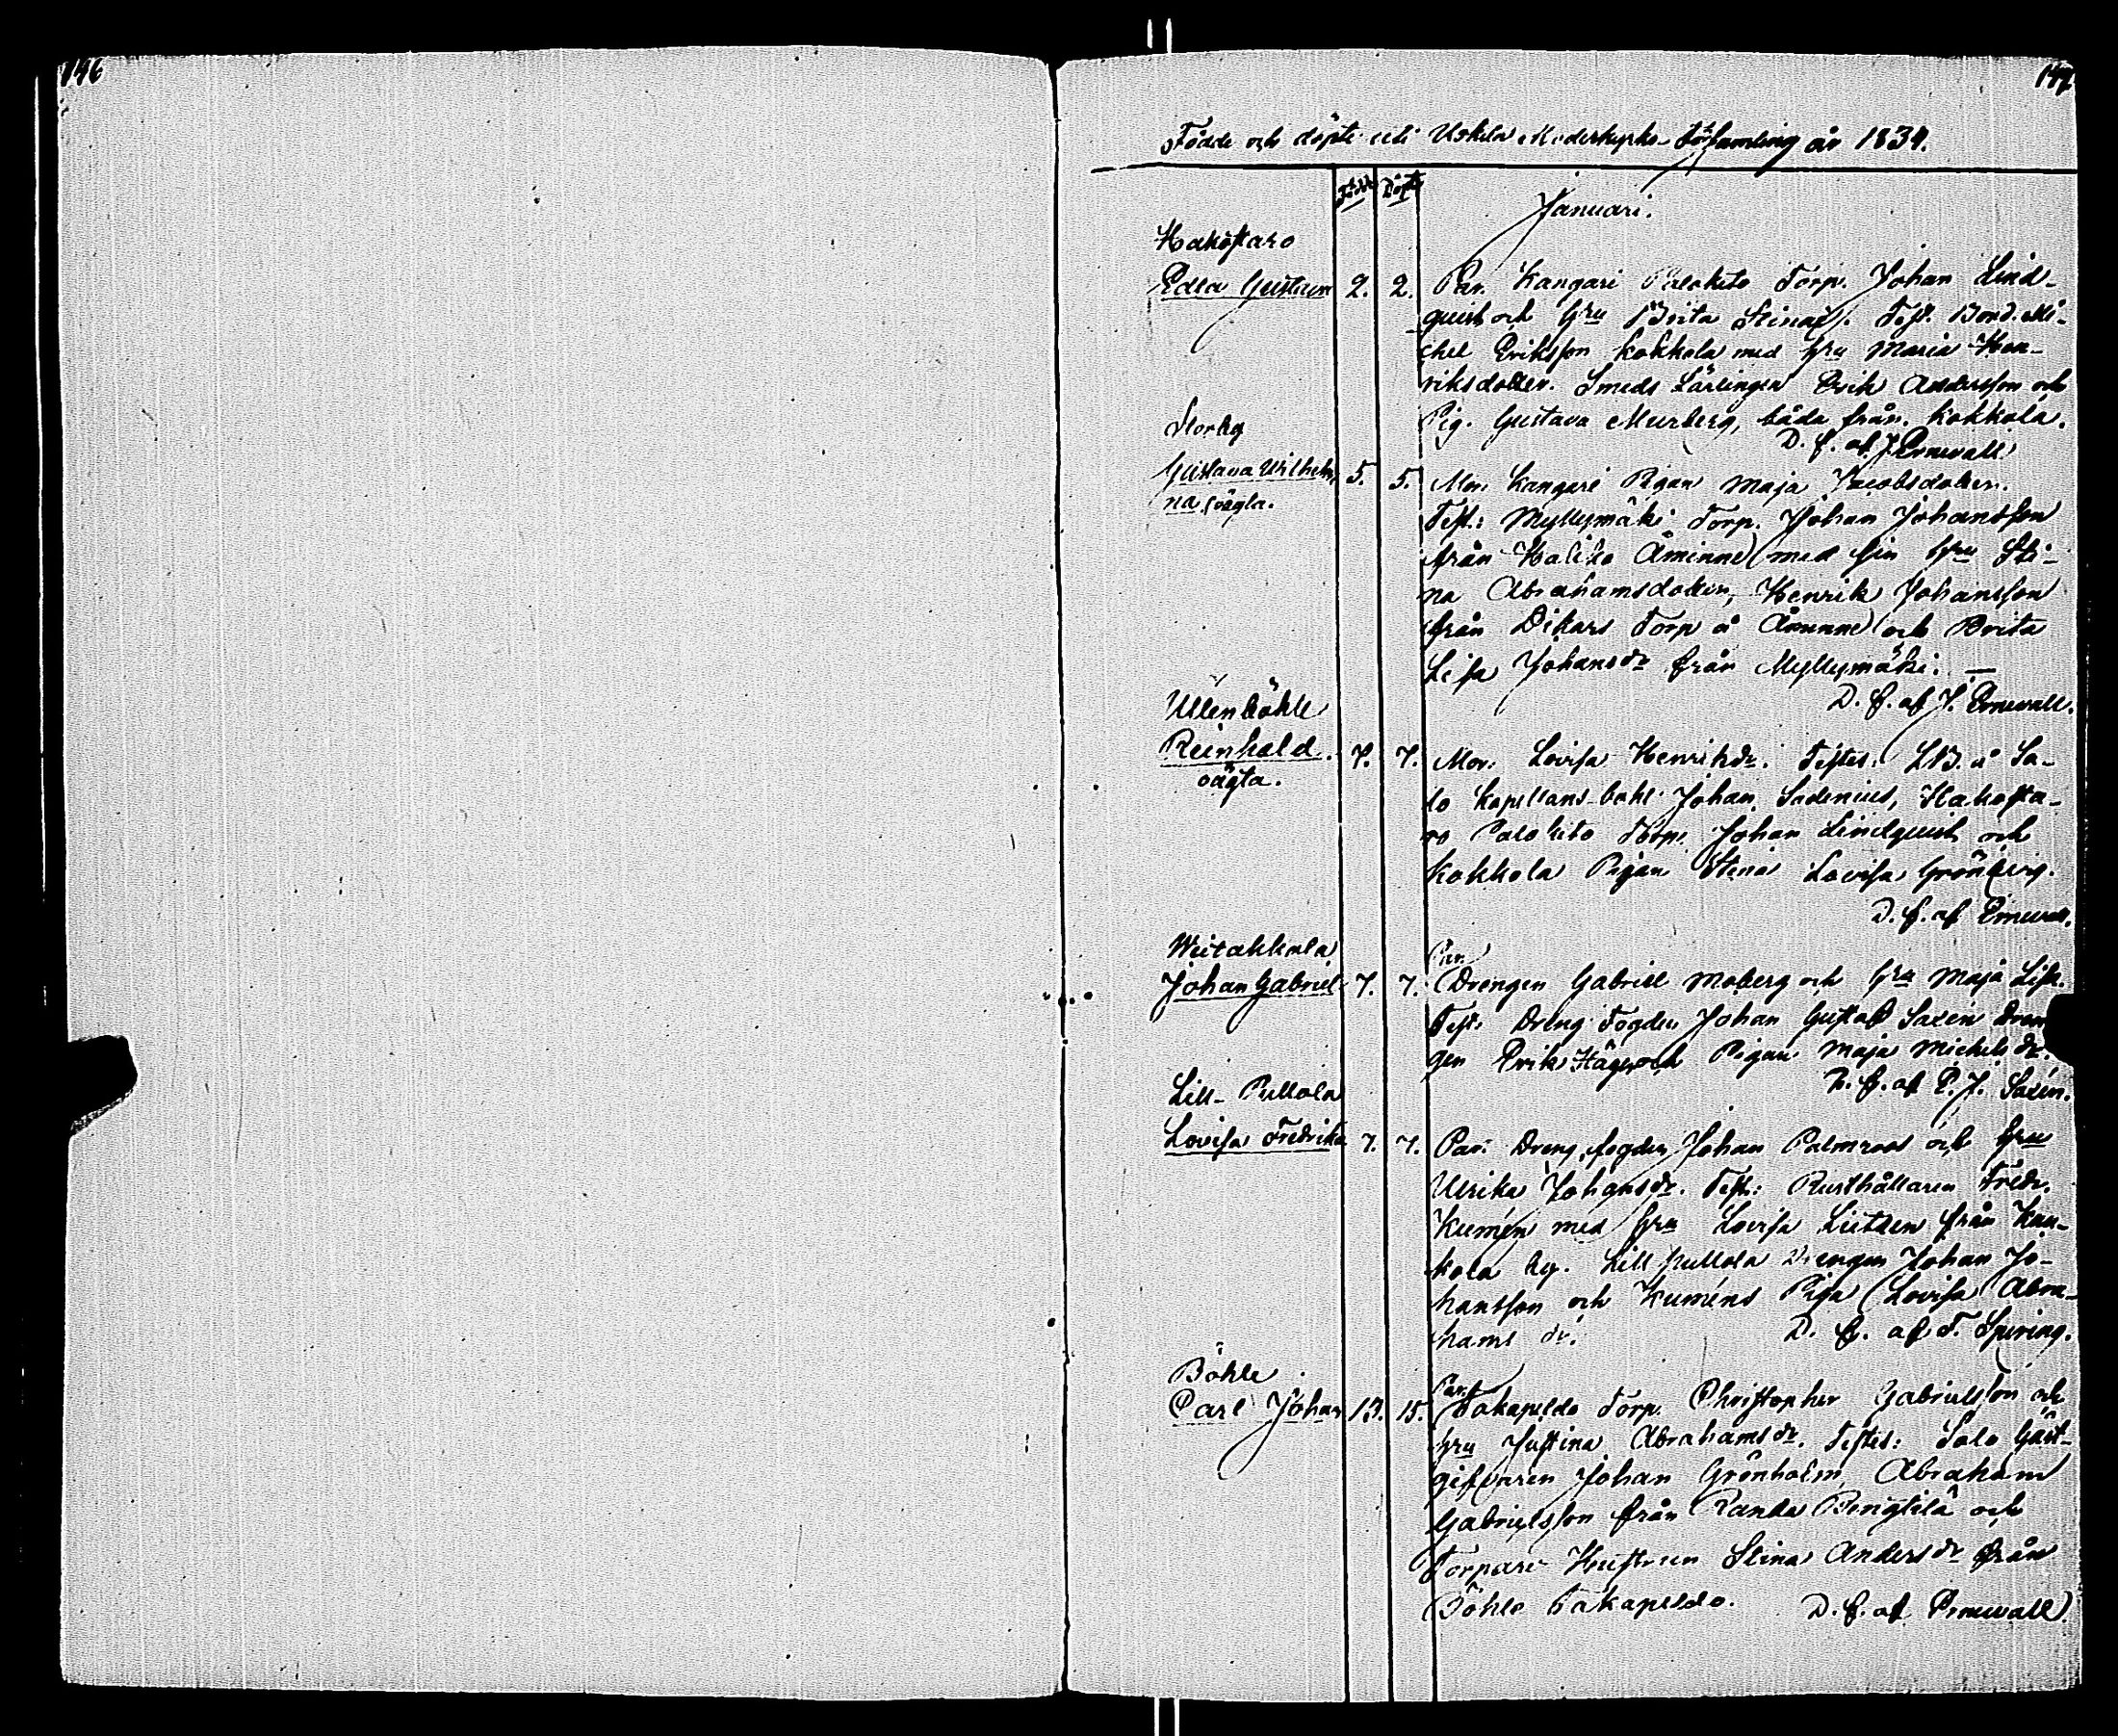 146
147.
Födde och döpte uti Uskela Moderkyrko-Församling år 1834.
Född Döpt
Januari.
Hakostaro
Edla Gustava 2. 2. Par. Kangari Palokito Torp. Johan Lind-
quist och hru Brita Stina. Test. Bond. Mi-
chel Eriksson Kokkola med hru Maria Hen-
riksdotter. Smeds Lärlingen Erik Andersson och
Storby
Pig. Gustava Murberg, båda från Kokkola.
D. f. af J. Ernewall
Gustava Wilhelmi- 5. 5. Mor. Kangari Pigan Maja Jacobsdotter.
na oägta. Test.: Myllymäki Torp. Johan Johansson
från Haliko Åminne med sin hru Sti-
na Abrahamsdotter, Henrik Johansson
från Dikars Torp å Åminne och Brita
Lisa Johansdr från Myllymäki. —
D. f. af J. Ernewall.
Ullenböhle
Reinhold. 7. 7. Mor. Lovisa Henriksdr. Testes: å Sa-
oägta. lo Kapellans bohl Johan Sadenius, Hakosta-
ro Palokito Torp. Johan Lindquist och
Kokkola Pigan Stina Lovisa Grönberg.
D. f. af Ernewall.
Weitakkala
Johan Gabriel 7. 7. Par. Drengen Gabriel Moberg och hru Maja Lisa.
Test. Dreng Fogden Johan Gustaf Salen Dren-
gen Erik Häger och Pigan Maja Michelsdr.
D. f. af E. J. Salén.
Lill-Pullola
Lovisa Fredrika 7. 7. Par. Dreng fogden Johan Palmroos och hru
Ulrika Johansdr. Test.: Rusthållaren Fredr.
Kumén med hru Lovisa Lietzen från Kau-
kola by. Lill Pullola Drengen Johan Jo-
hansson och Kuméns Piga Lovisa Abra-
hams dr. D. f. af F. Spiring.
Böhle
Carl Johan 13. 15. Par. Takapeldo Torp. Christopher Gabrielsson och
hru Justina Abrahamsdr. Testes: Salo Gäst-
gifvaren Johan Grönholm, Abraham
Gabrielsson från Randa Bengtilä och
Torpare Hustrun Stina Andersdr från
Böhle Takapeldo. D. f. af Ernewall